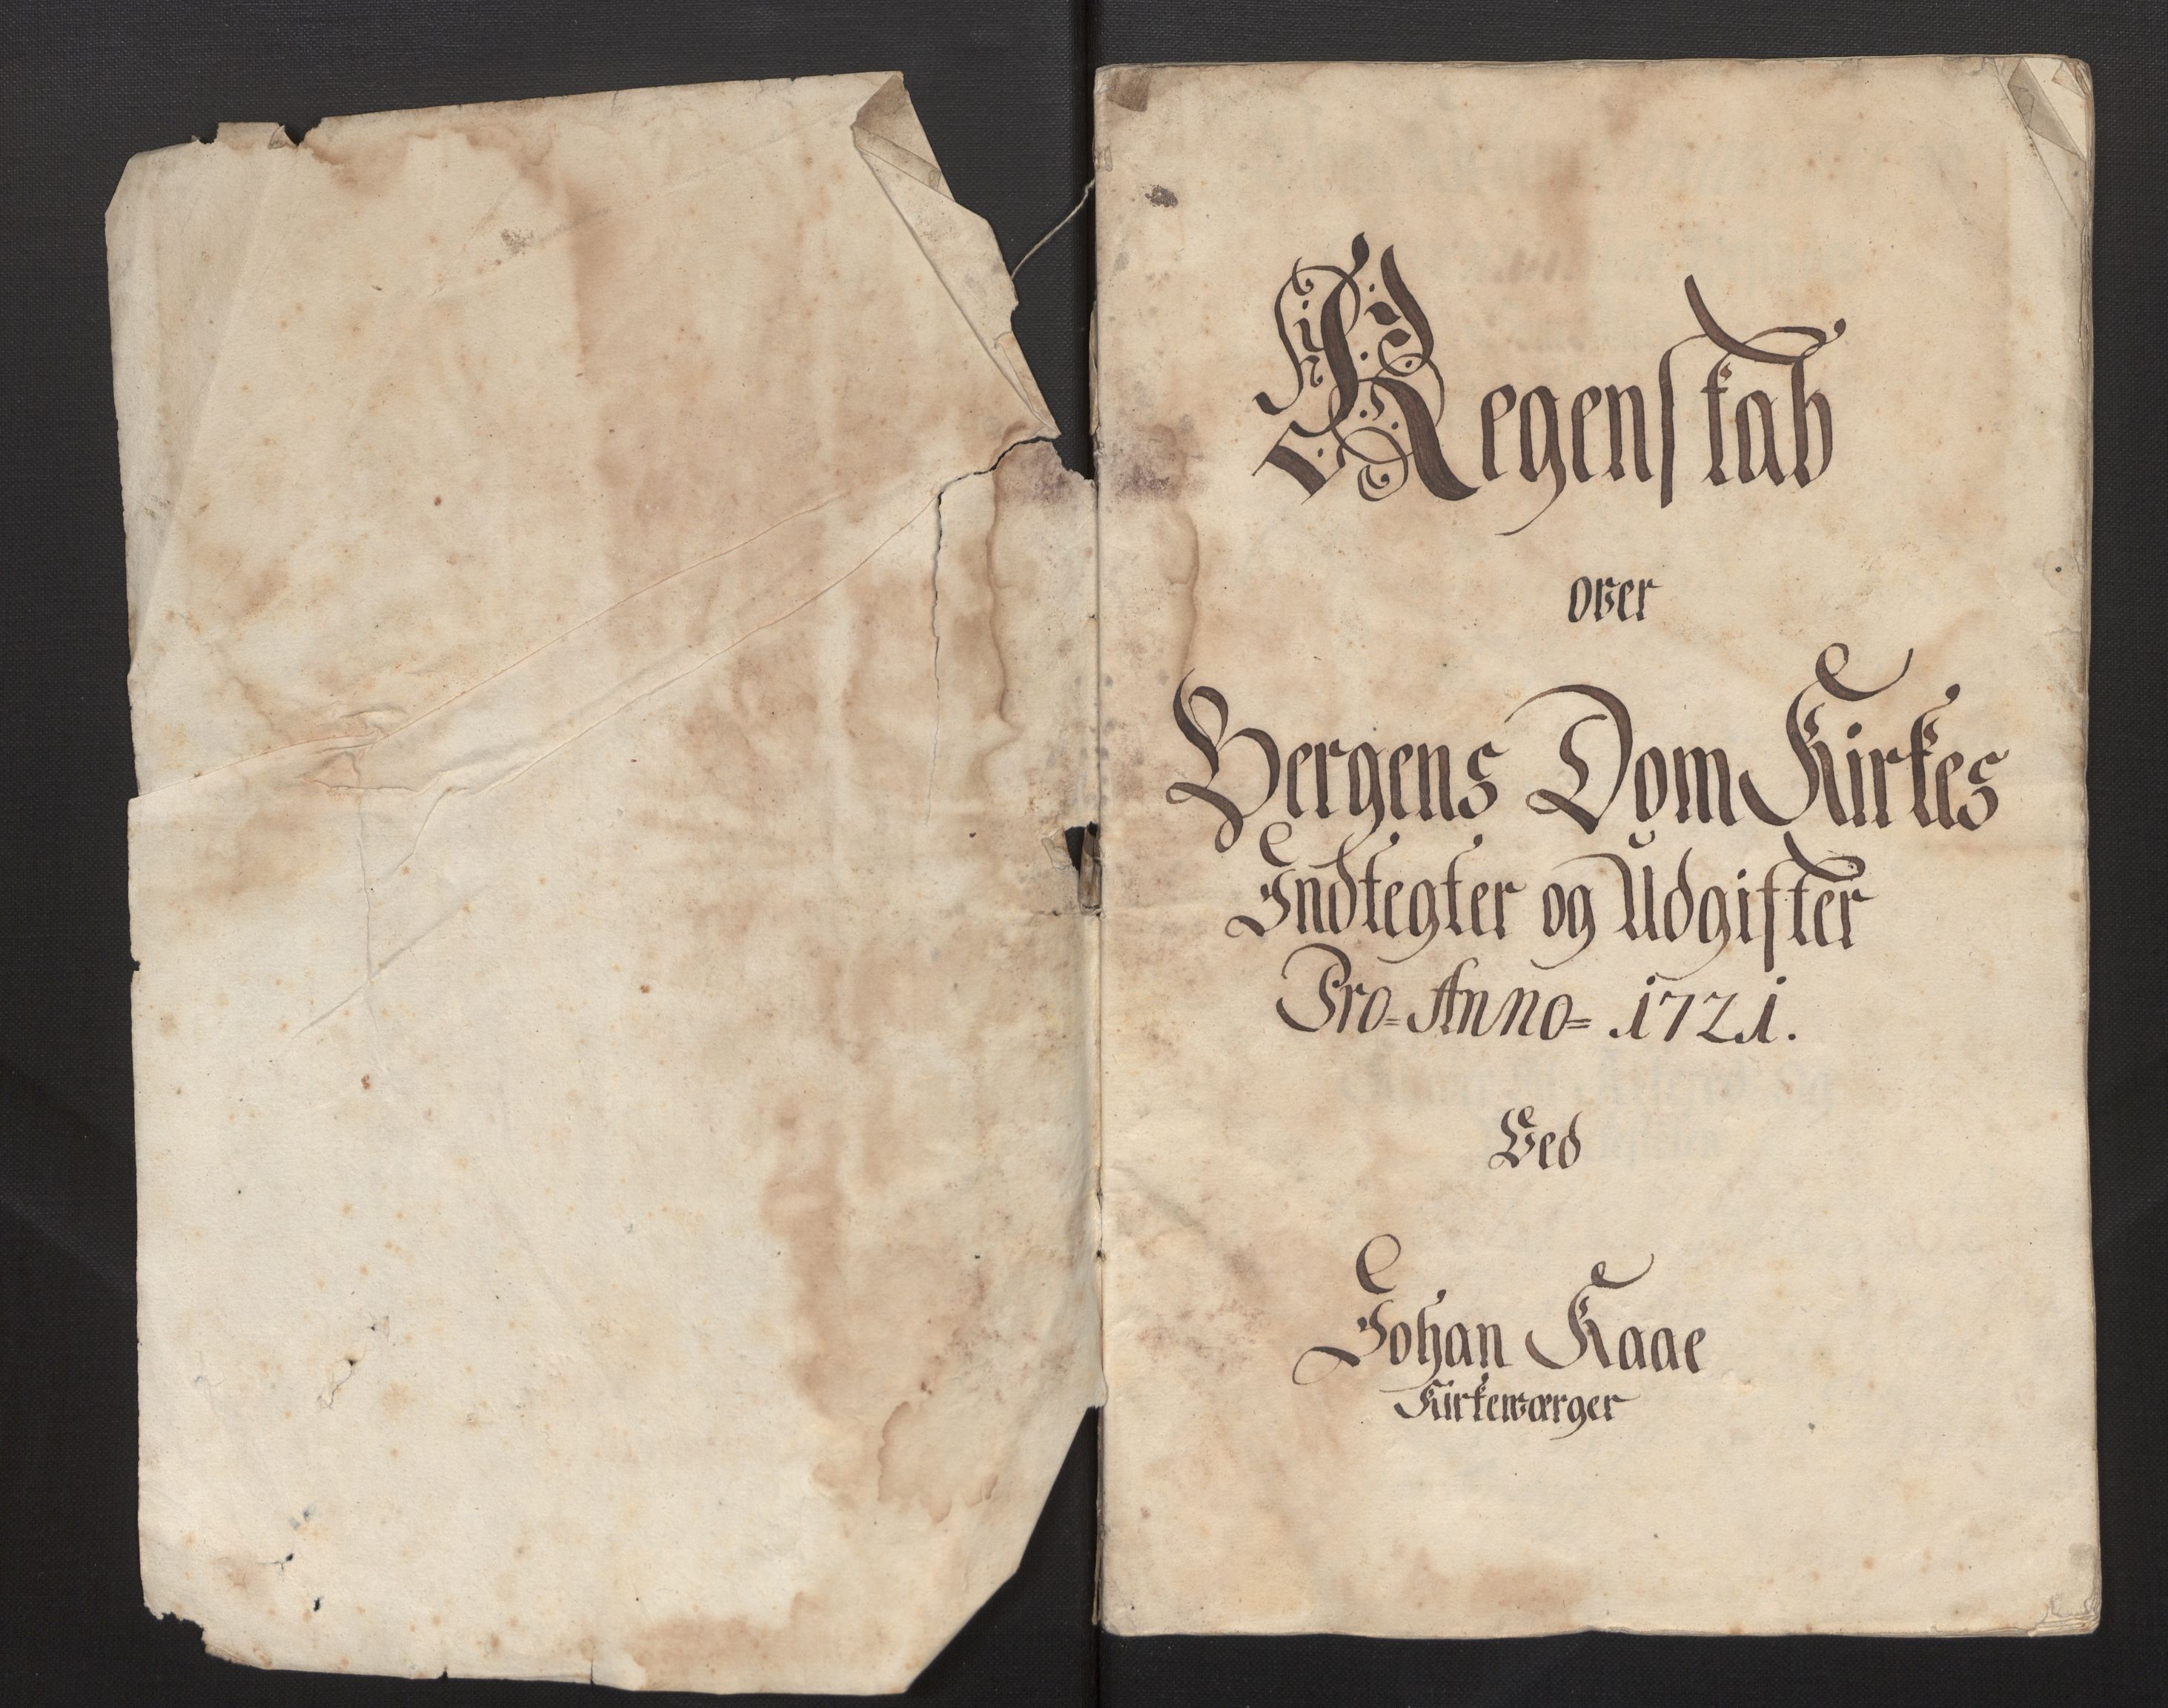 Regenskab
over
Bergens Dom Kirkes
Indtegter og Udgifter
Pro= Anno= 1721.
Ved
Johan Kaae
Kirkewærger